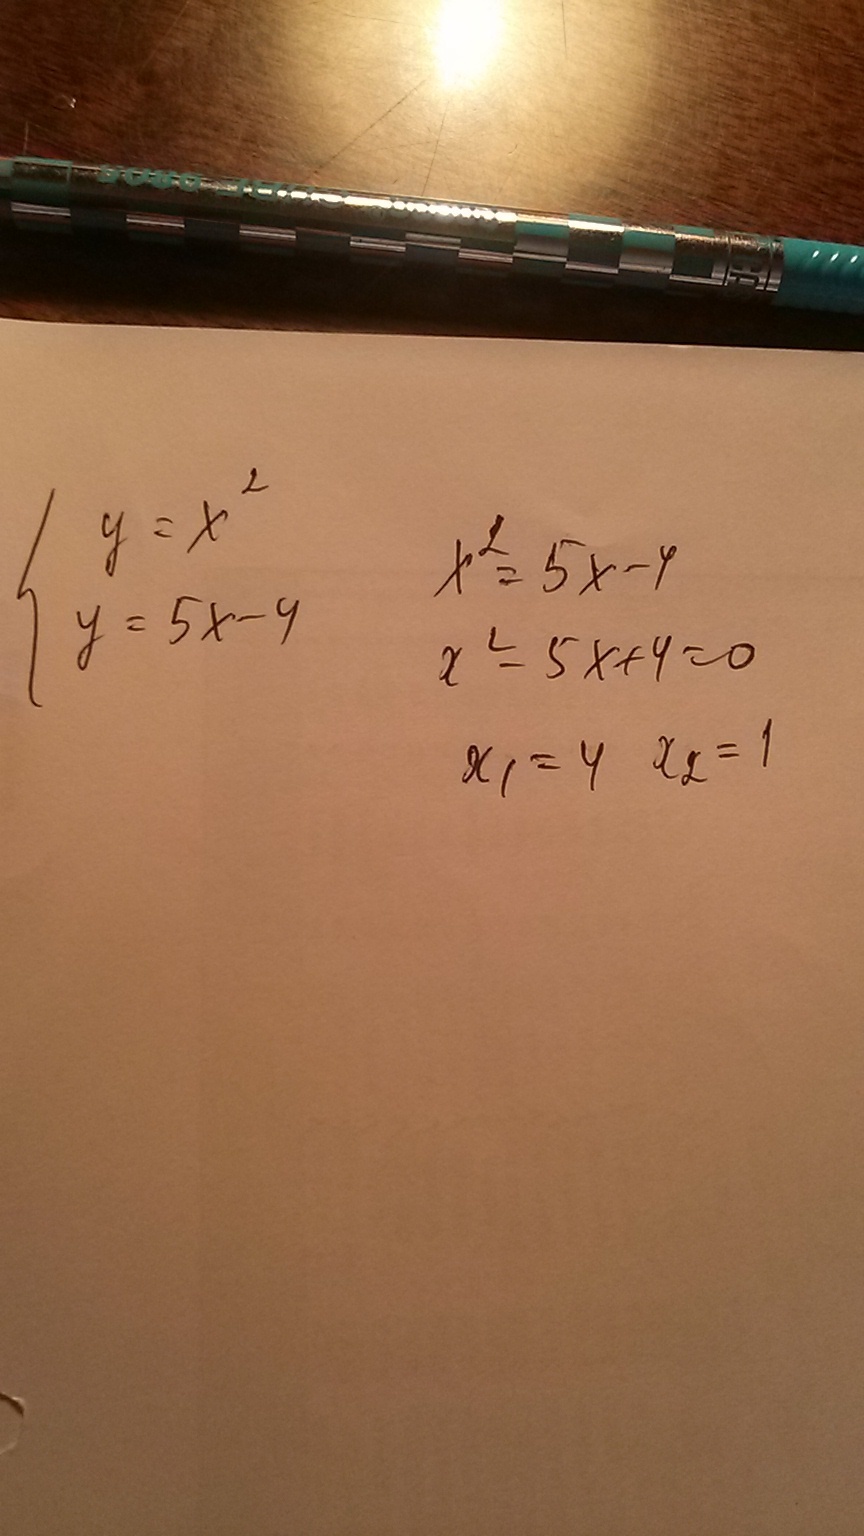 y = x²
y = 5x-4
x² = 5x-4
x² - 5x+4=0
x₁ = 4 x₂ = 1